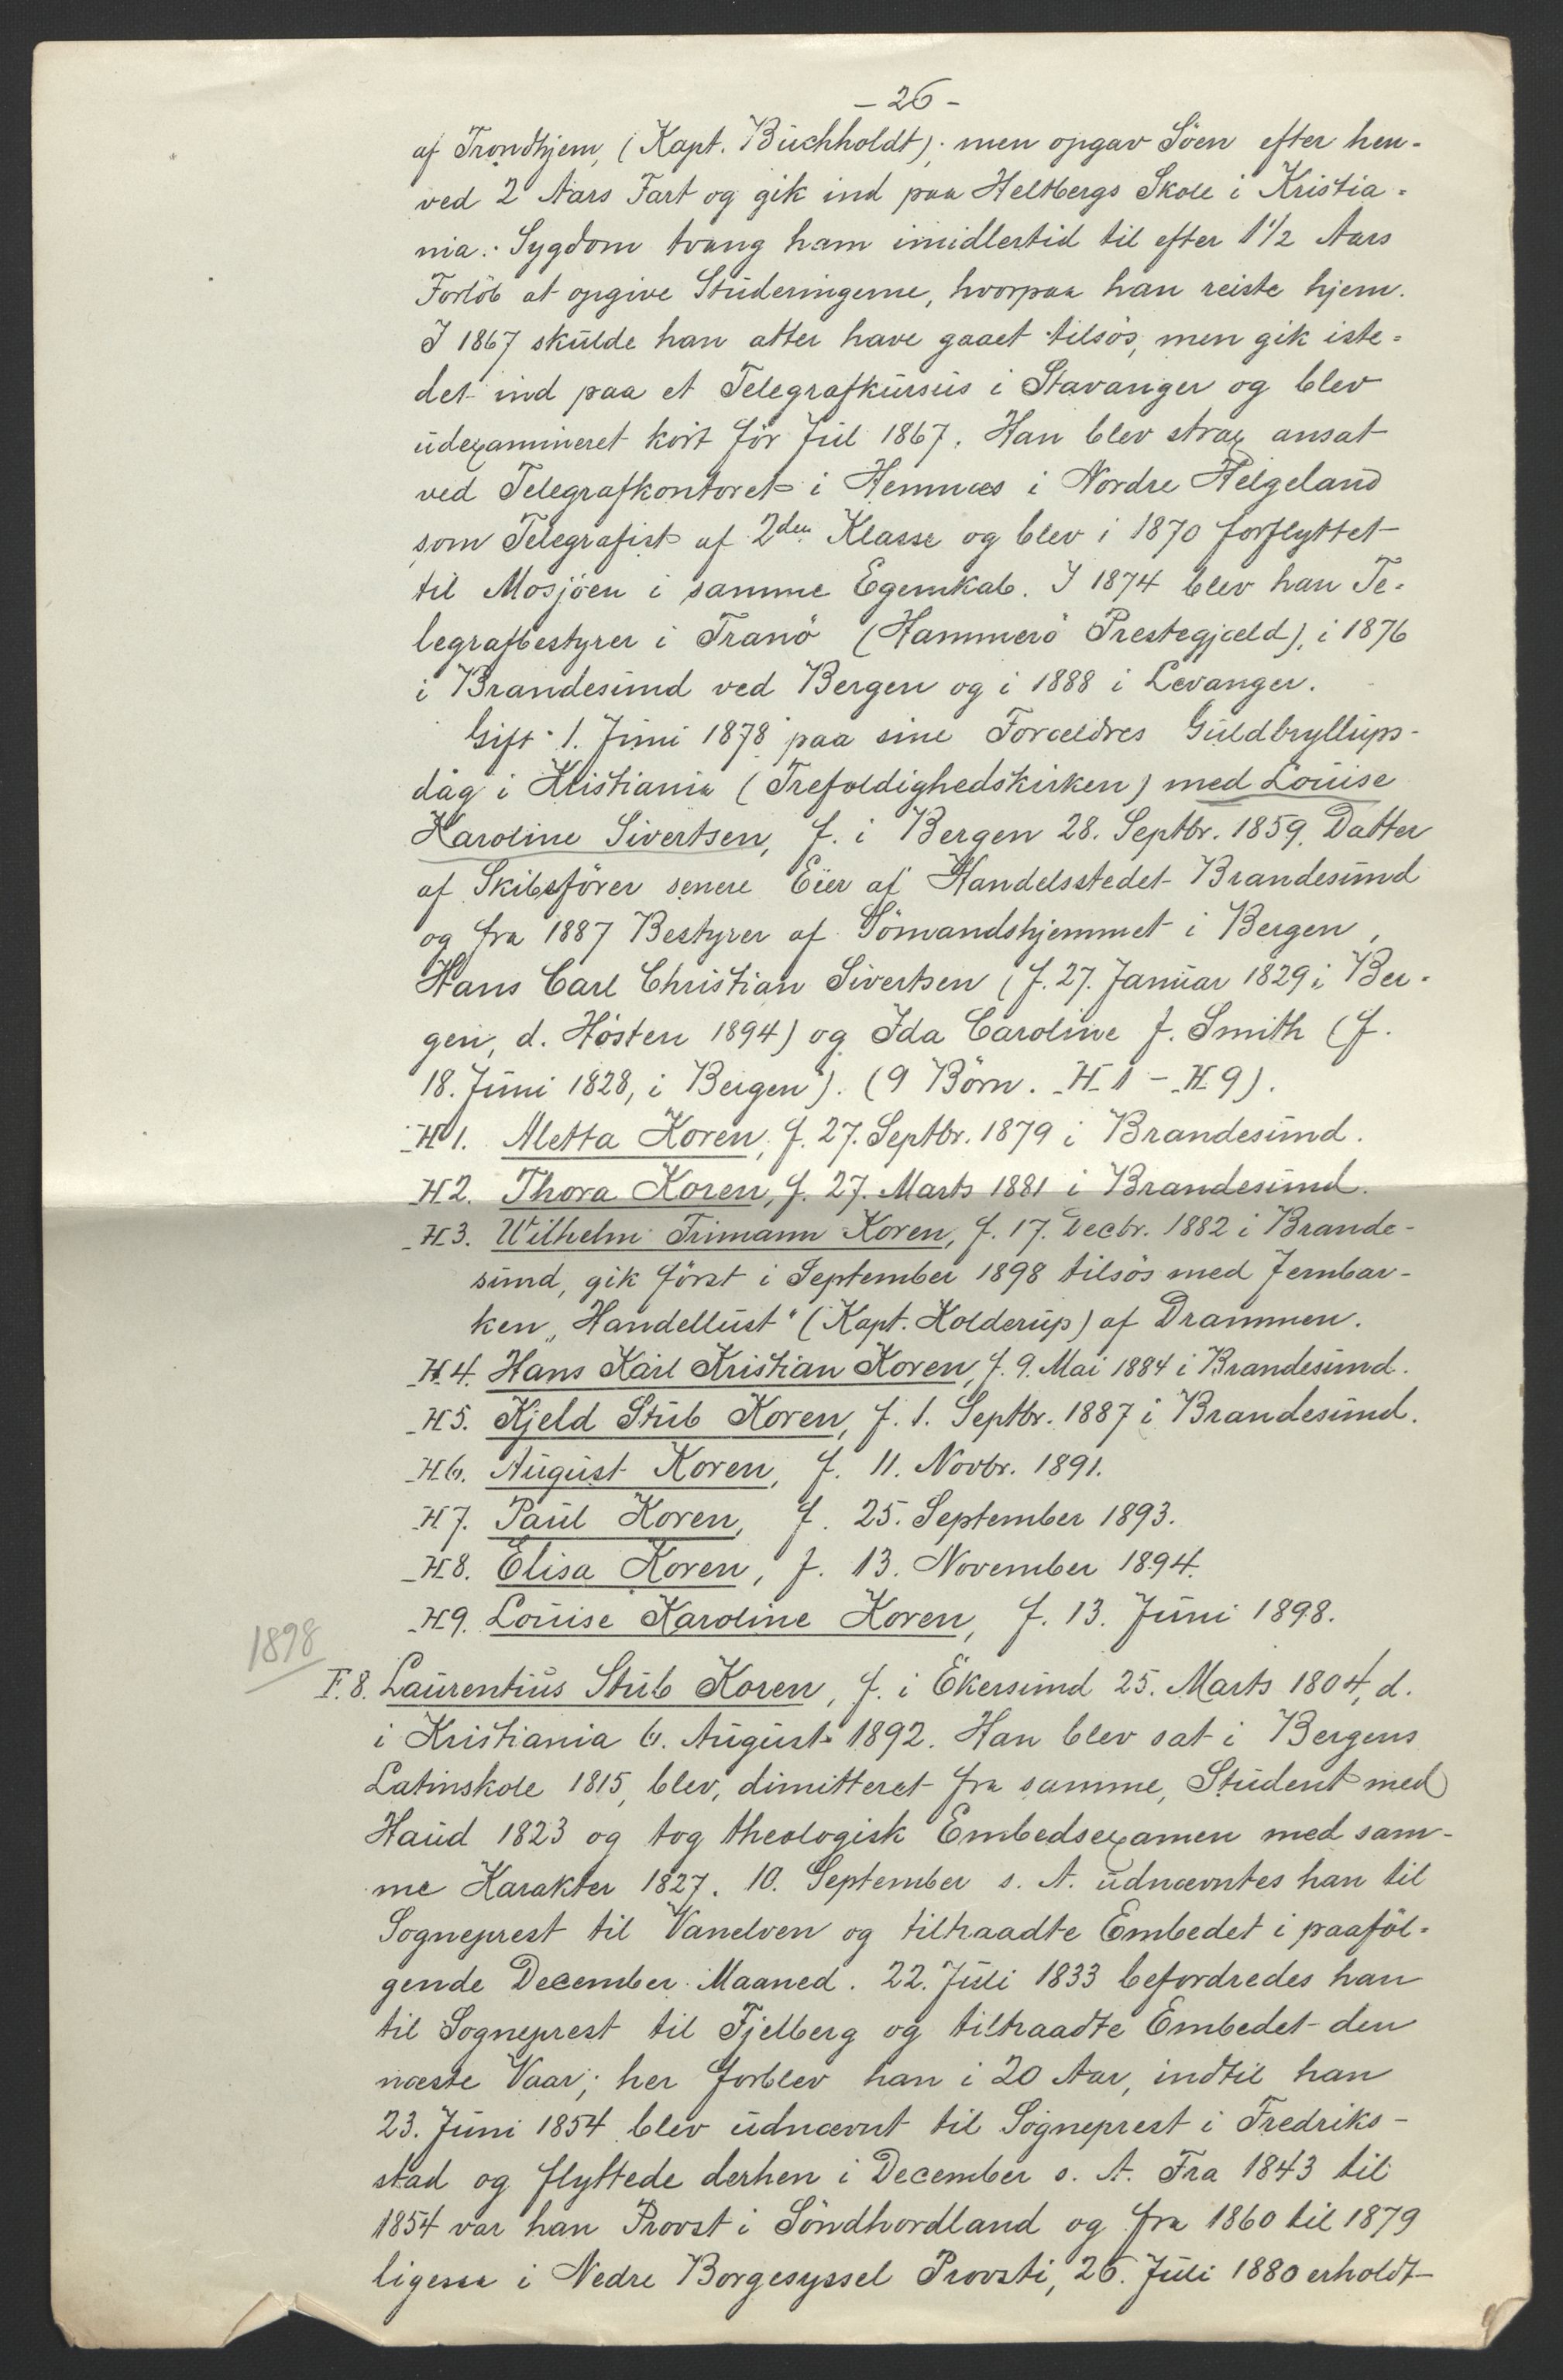 - 26 -
af Trondhjem, (Kapt. Buchholdt); men opgav Söen efter hen-
ved 2 Aars Fart og gik ind paa Heltbergs Skole i Kristia-
nia. Sygdom tvang ham imidlertid til efter 1 1/2 Aars
Forlöb at opgive Studeringerne, hvorpaa han reiste hjem.
I 1867 skulde han atter have gaaet tilsös, men gik iste-
det ind paa et Telegrafkursus i Stavanger og blev
udexamineret kort för Jul 1867. Han blev strax ansat
ved Telegrafkontoret i Hemnæs i Nordre Helgeland
som Telegrafist af 2den Klasse og blev i 1870 forflyttet
til Mosjöen i samme Egenskab. I 1874 blev han Te-
legrafbestyrer i Tranö (Hammerö Prestegjæld), i 1876
i Brandesund ved Bergen og i 1888 i Levanger.
Gift 1. Juni 1878 paa sine Forældres Guldbryllups-
dag i Kristiania (Trefoldighedskirken) med Louise
Karoline Sivertsen, f. i Bergen 28. Septbr. 1859. Datter
af Skibsförer senere Eier af Handelsstedet Brandesund
og fra 1887 Bestyrer af Sömandshjemmet i Bergen,
Hans Carl Christian Sivertsen (f. 27. Januar 1829 i Ber-
gen, d. Hösten 1894) og Ida Caroline f. Smith (f.
18. Juni 1828, i Bergen). (9 Börn. H 1 - H 9).
H 1. Aletta Koren, f. 27. Septbr. 1879 i Brandesund.
H 2. Thora Koren, f. 27. Marts 1881 i Brandesund.
H 3. Wilhelm Frimann Koren, f. 17. Decbr. 1882 i Brande-
sund, gik först i September 1898 tilsös med Jernbar-
ken „Handellust" (Kapt. Holderup) af Drammen.
H 4. Hans Karl Kristian Koren, f. 9. Mai 1884 i Brandesund.
H 5. Kjeld Stub Koren, f. 1. Septbr. 1887 i Brandesund.
H 6. August Koren, f. 11. Novbr. 1891.
H 7. Paul Koren, f. 25. September 1893.
H 8. Elisa Koren, f. 13. November 1894.
H 9. Louise Karoline Koren, f. 13. Juni 1898.
1898
F. 8. Laurentius Stub Koren, f. i Ekersund 25. Marts 1804, d.
i Kristiania 6. August 1892. Han blev sat i Bergens
Latinskole 1815, blev, dimitteret fra samme, Student med
Haud 1823 og tog theologisk Embedsexamen med sam-
me Karakter 1827. 10. September s. A. udnævntes han til
Sogneprest til Vanelven og tiltraadte Embedet i paaföl-
gende December Maaned. 22. Juli 1833 befordredes han
til Sogneprest til Fjelberg og tiltraadte Embedet den
næste Vaar; her forblev han i 20 Aar, indtil han
23. Juni 1854 blev udnævnt til Sogneprest i Fredriks-
stad og flyttede derhen i December s. A. Fra 1843 til
1854 var han Provst i Söndhordland og fra 1860 til 1879
ligesaa i Nedre Borgesyssel Provsti, 26. Juli 1880 erholdt